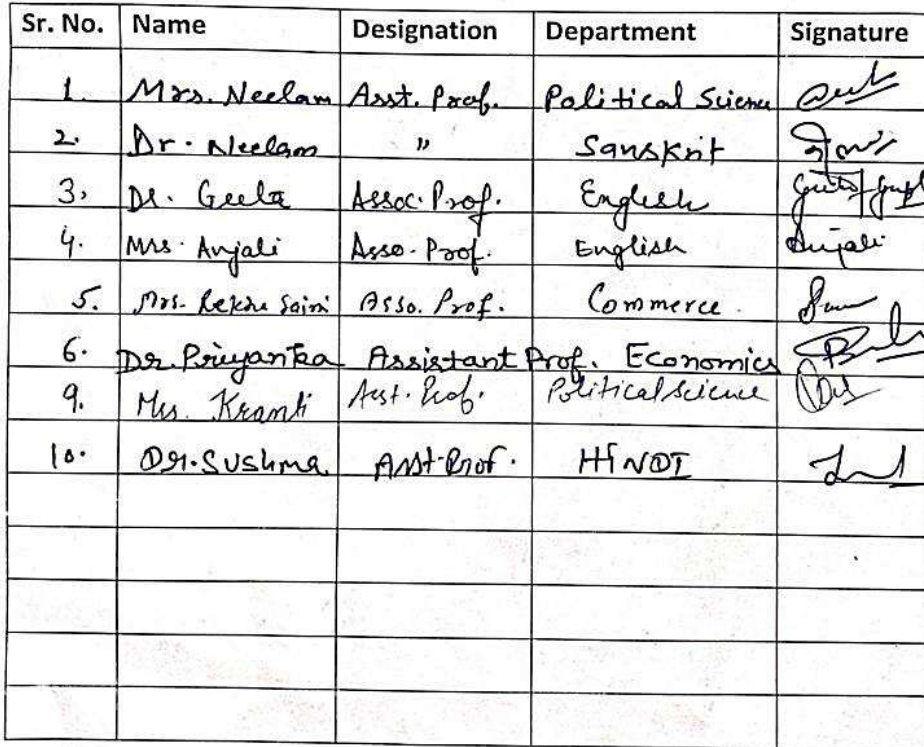 Sr. No. Name Designation Department Signature
1. Mrs. Neelam Asst. Prof. Political Science
2. Dr. Neelam " Sanskrit नीलम
3. Dr. Geeta Assoc. Prof. English
4. Mrs. Anjali Asso. Prof. English Anjali
5. Mrs. Rekha Saini Asso. Prof. Commerce
6. Dr. Priyanka Assistant Prof. Economics
9. Mrs. Kranti Asst. Prof. Political science
10. Dr. Sushma Asst. Prof. HINDI